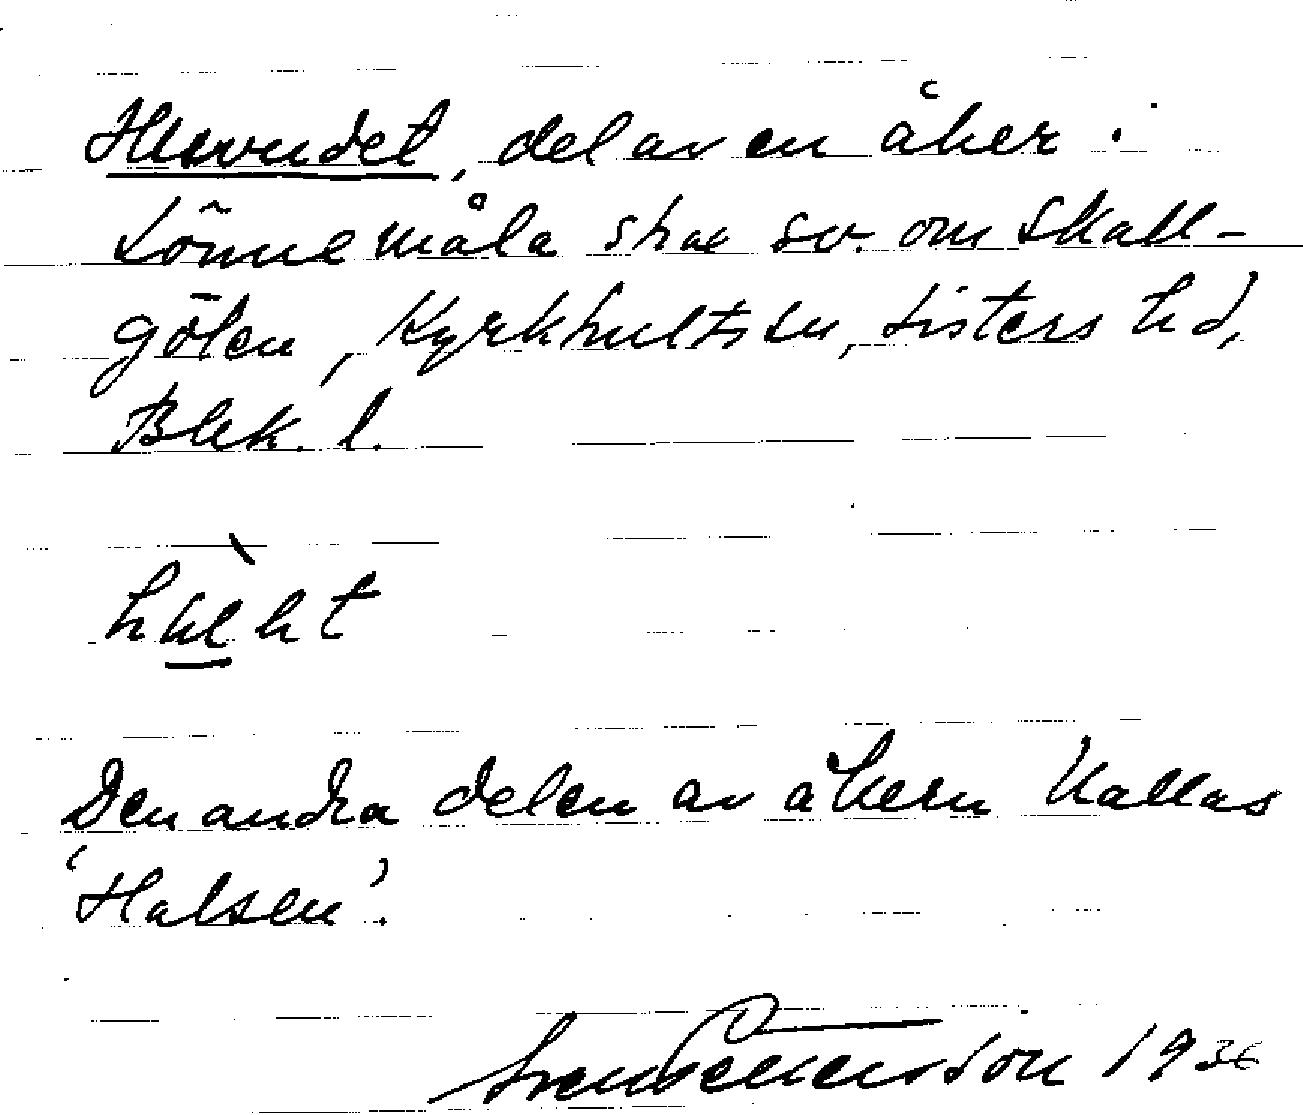 Huvudet, del av en åker i
Lönnemåla strax sv. om Skall-
gölen, Kyrkhults sn, Listers hd,
Blek. l.
Den andra delen av åkern kallas
'Halsen'.
1936